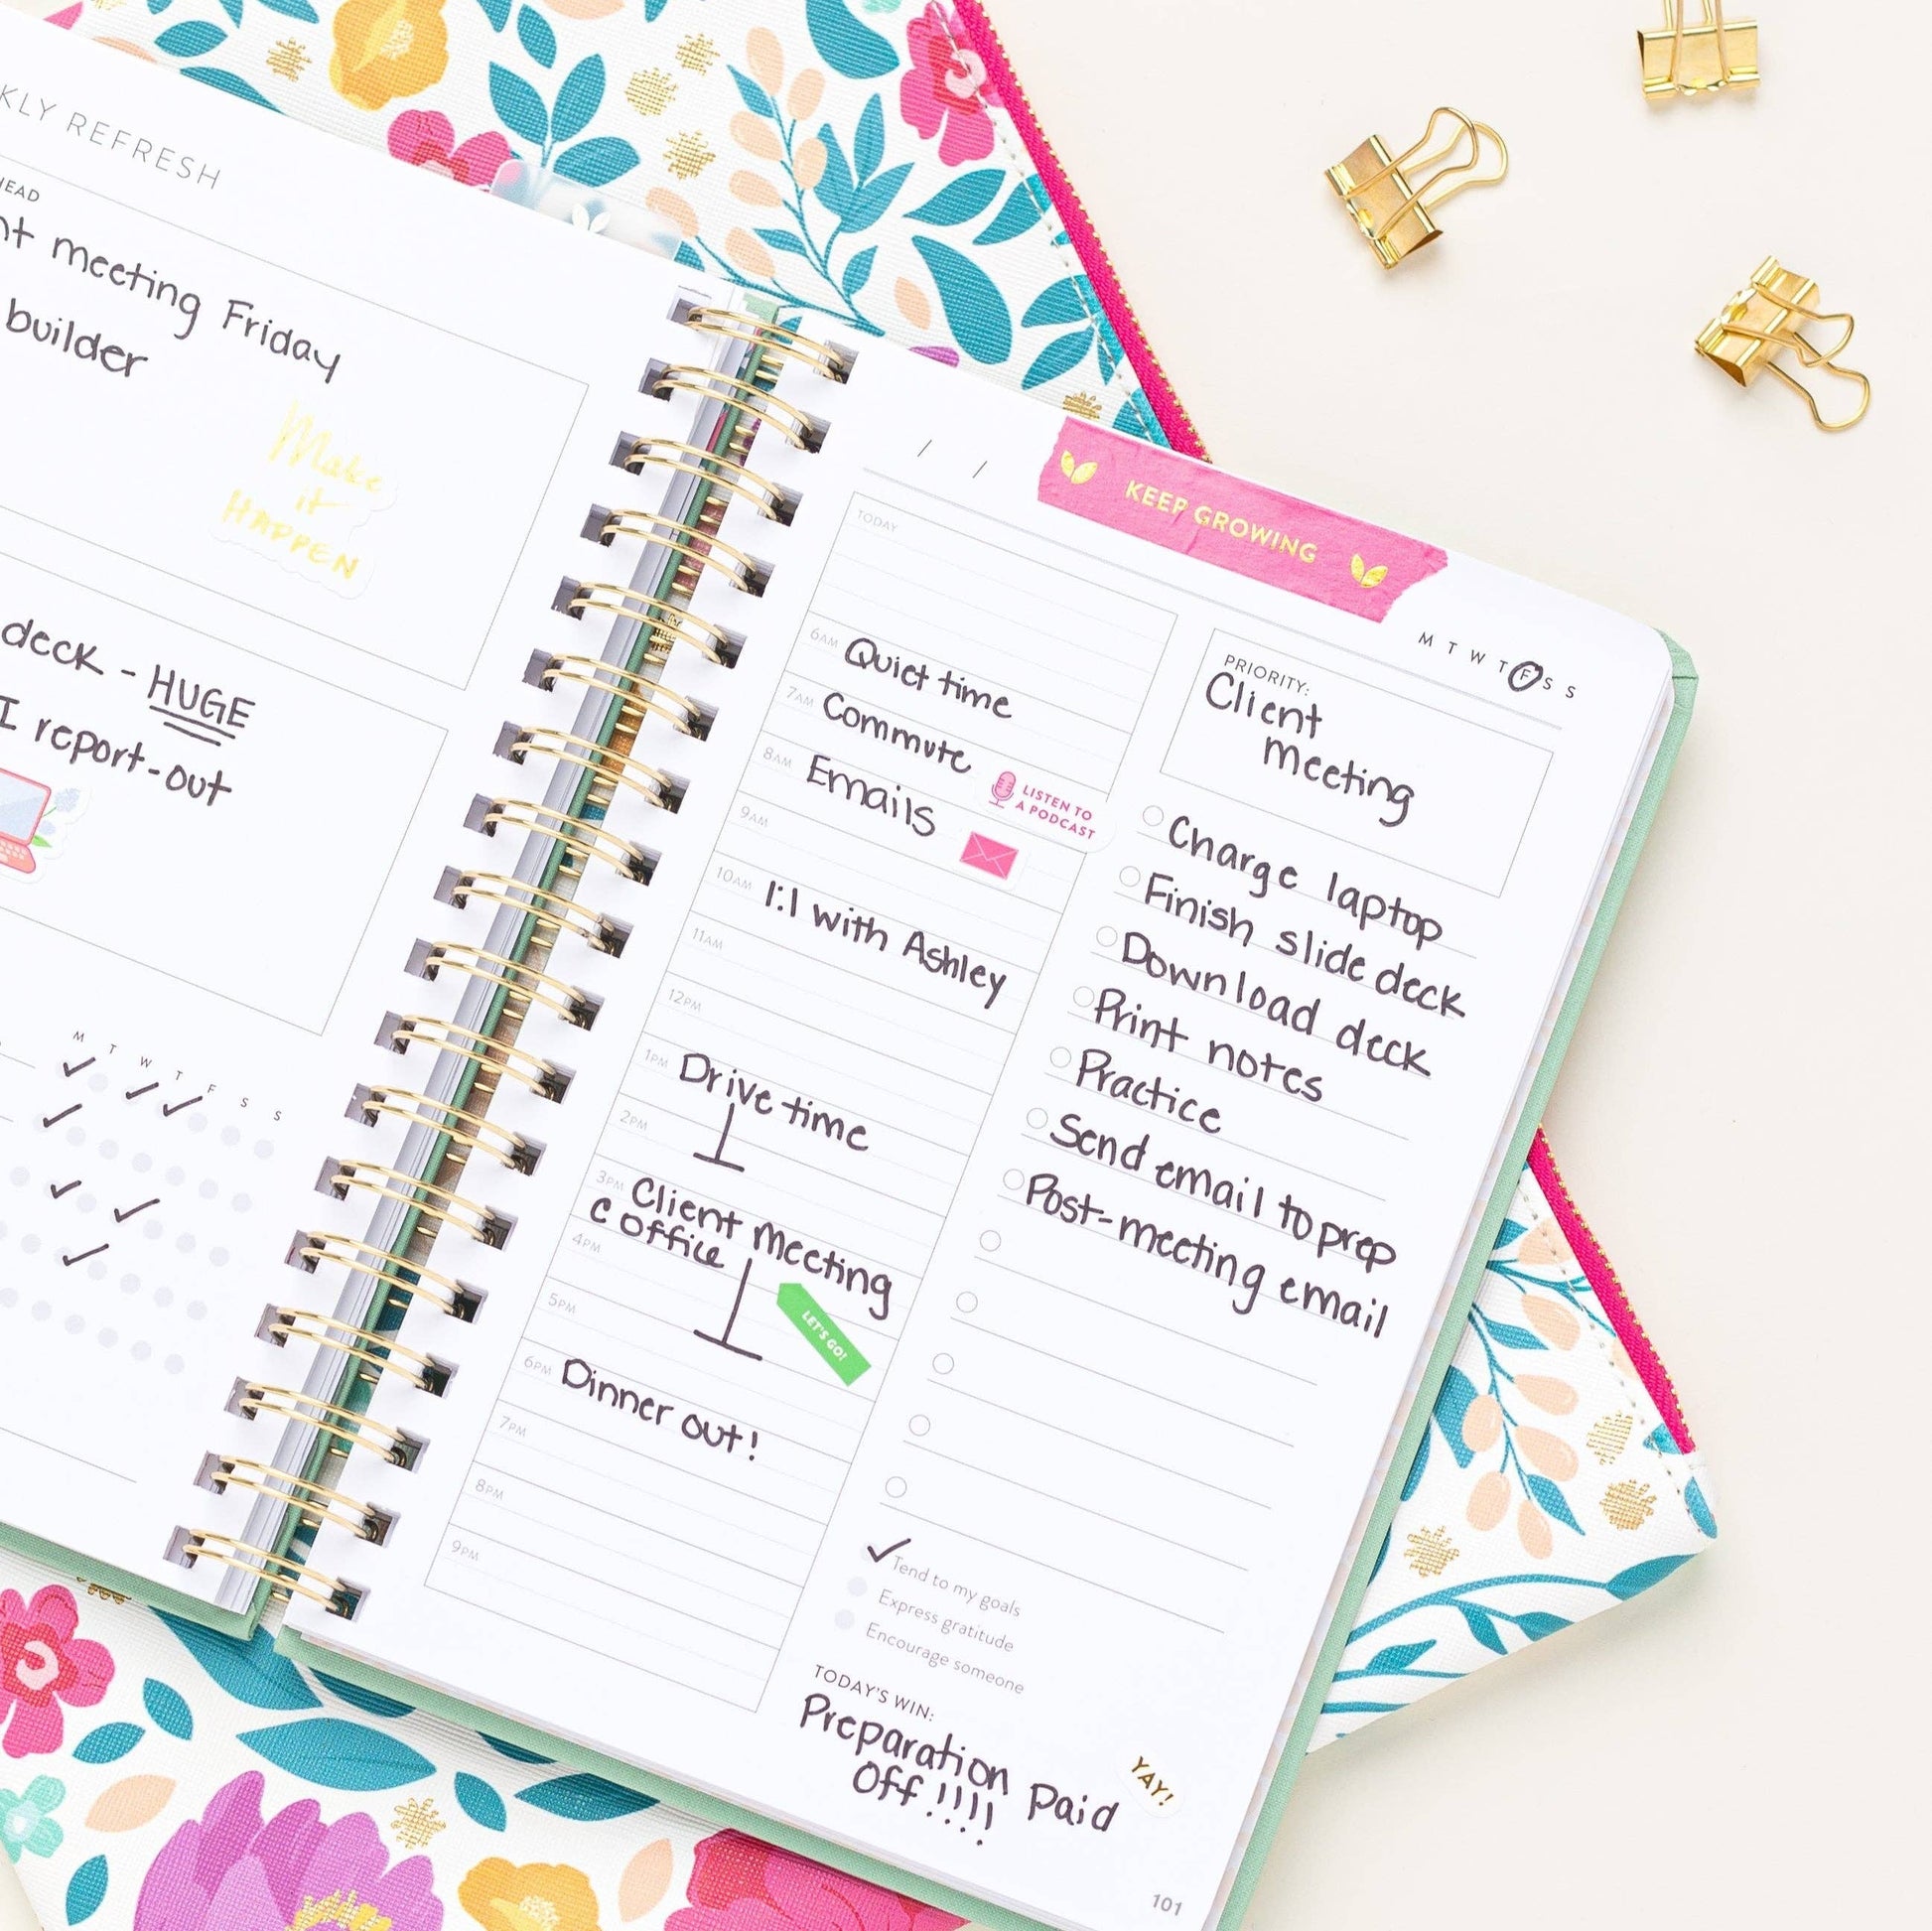 REFRESH
meeting Friday
builder
Make
it
HAPPEN
deck - HUGE
I report-out
M T W T F S S
/ /
KEEP GROWING
M T W T F S S
TODAY
6AM Quiet time
7AM Commute
LISTEN TO
A PODCAST
8AM Emails
9AM
10AM 1:1 with Ashley
11AM
12PM
1PM Drive time
2PM
3PM Client meeting
C Office
4PM
LET'S GO!
5PM
6PM Dinner out!
7PM
8PM
9PM
PRIORITY:
Client
meeting
Charge laptop
Finish slide deck
Download deck
Print notes
Practice
Send email to prep
Post-meeting email
Tend to my goals
Express gratitude
Encourage someone
TODAY'S WIN:
Preparation Paid
Off!!!!
YAY!
101